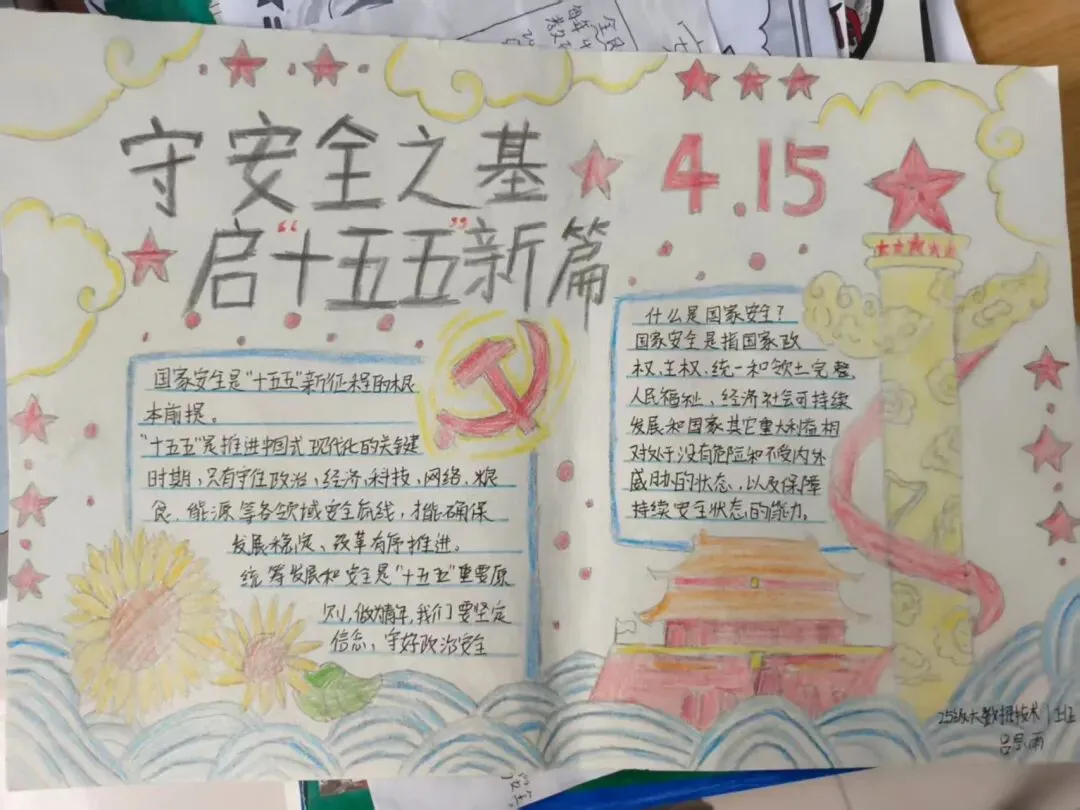 守安全之基
4.15
启“十五五”新篇
国家安全是“十五五”新征程的根
本前提。
“十五五”是推进中国式现代化的关键
时期，只有守住政治、经济、科技、网络、粮
食、能源等各领域安全底线，才能确保
发展稳定、改革有序推进。
统筹发展和安全是“十五五”重要原
则，做为青年，我们要坚定
信念，守好政治安全
什么是国家安全？
国家安全是指国家政
权、主权、统一和领土完整
人民福祉、经济社会可持续
发展和国家其它重大利益相
对处于没有危险和不受内外
威胁的状态，以及保障
持续安全状态的能力。
25级大数据技术1班